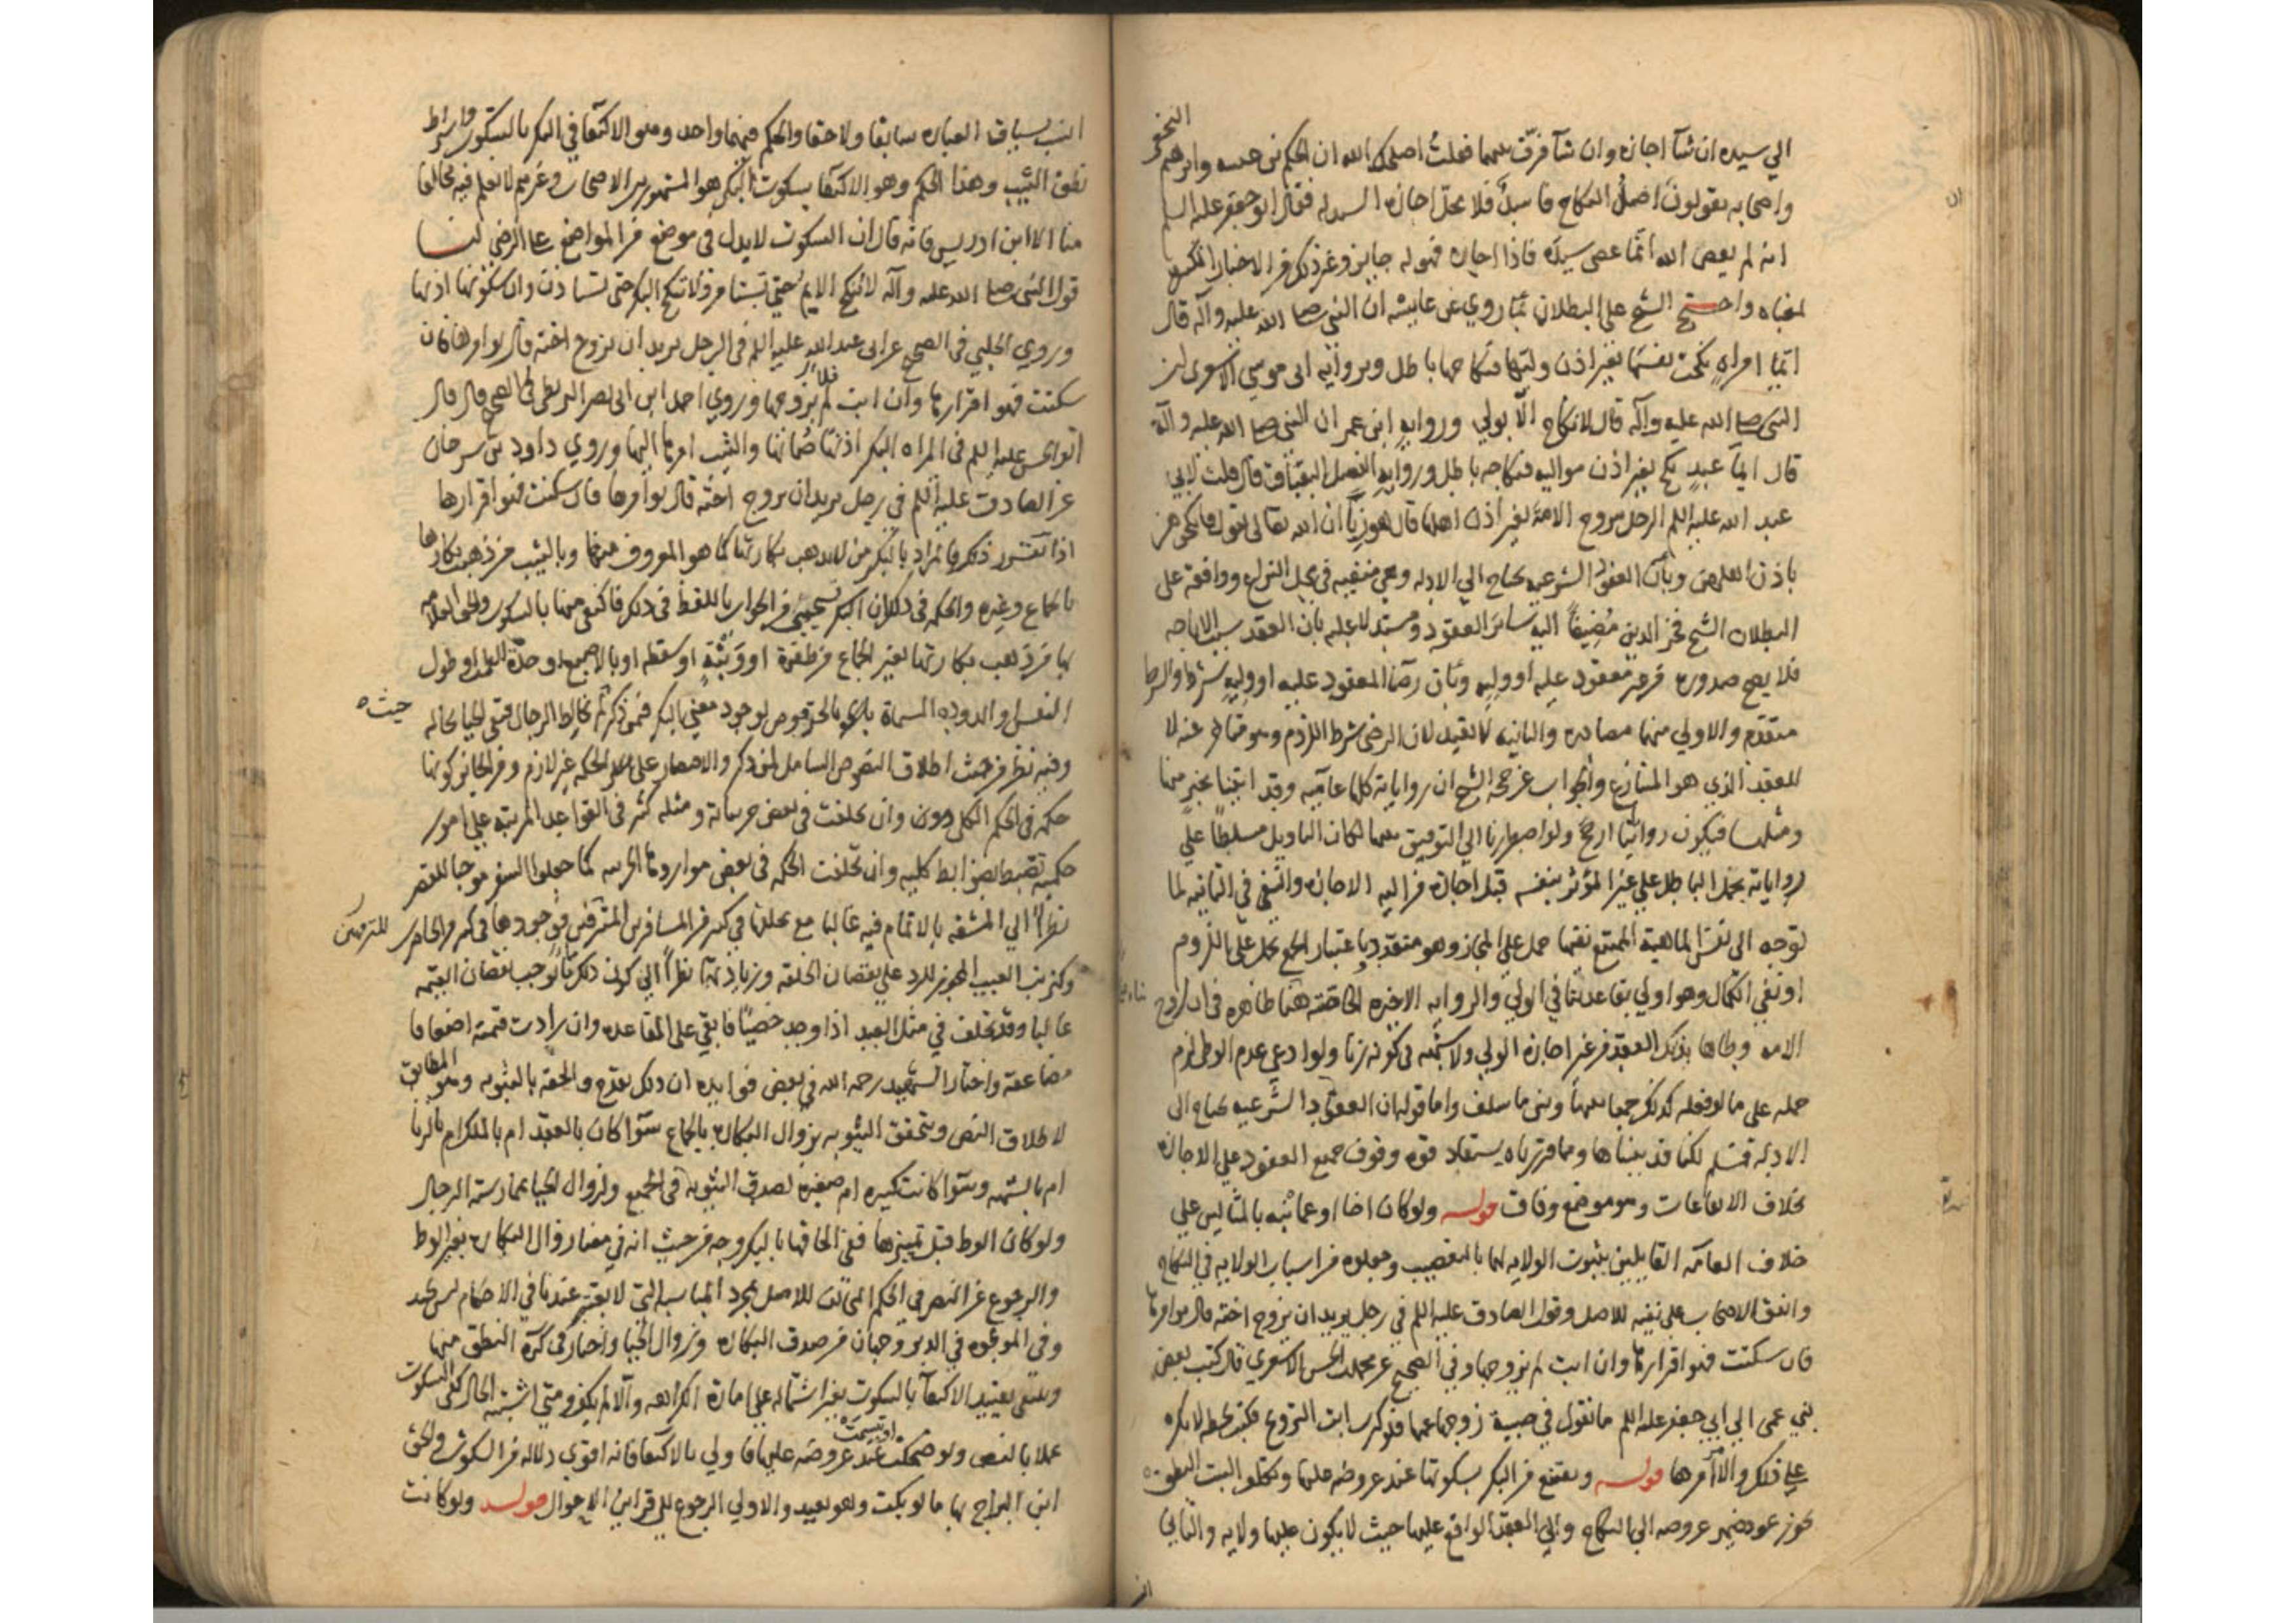 الي سيده ان شآ اجازه وان شآ فرّق بينهما فقلت اصلحك الله ان الحكم بن عيينه وابرهيم النخعي
واصحابه يقولون اصل النكاح فاسد فلا يحل اجازه السيد له فقال ابو جعفر عليه السلم
انه لم يعص الله انما عصى سيده فاذا اجازه فهو له جايز وغير ذلك من الاخبار
لمعناه واحتج الشيخ على البطلان بما روي عن عايشه ان النبي صلى الله عليه وآله قال
ايما امراه نكحت نفسها بغير اذن وليها فنكاحها باطل وبروايه ابى موسي الاشعرى ان
النبي صلى الله عليه وآله قال لا نكاح الا بولي وروايه ابن عمر ان النبي صلى الله عليه وآله
قال ايما عبد نكح بغير اذن مواليه فنكاحه باطل وروايه الفضل البقباق قال قلت لابي
عبد الله عليه السلم الرجل يتزوج الامة بغير اذن اهلها قال هو زنا ان الله تعالى يقول فانكحوهن
باذن اهلهن وبان العقود الشرعيه تحتاج الي الادله وهي منفيه في محل النزاع ووافقه على
البطلان الشيخ فخر الدين مضيفا اليه سائر العقود ومستدلا عليه بان العقد سبب الاباحه
فلا يصح صدوره من غير معقود عليه او وليه وبان رضا المعقود عليه او وليه شرط والشرط
متقدم والاولي منهما مصادره والثانيه لا تفيد لان الرضى شرط اللزوم وهو متاخر عنه لا
للعقد الذي هو المتنازع والجواب عن حجه الشيخ ان رواياته كلها عاميه وقد اتينا بخير منها
ومثلها فيكون رواياتنا ارجح ولو اضطررنا الي التوفيق بينهما لكان التاويل مسلطا علي
رواياته بحمل الباطل علي غير المؤثر بنفسه قبل اجازه من اليه الاجازه والنفي في الثانيه لما
توجه الي نفس الماهية الممتنع نفيها حمل على المجاز وهو متعدد باعتبار الجمع تحمل على اللزوم
او نفي الكمال وهو اولي بقاعدتنا في الولي والروايه الاخيره الخاصه هنا ظاهره في ان تزوج
الامه وطاها بذلك العقد من غير اجازه الولي ولا شبهه فى كونه زنا ولو ادعي عدم الوطى لزم
حمله على ما لو فعله كذلك جمعا بينها وبين ما سلف واما قوله ان العقود الشرعيه تحتاج الى
الادله فمسلم لكنا قد بيناها ومما قررناه يستفاد قوه وقوف جميع العقود على الاجازه
بخلاف الايقاعات وهو موضع وفاق قوله ولو كان اخا او عما نبه بالمثالين علي
خلاف العامه القايلين بثبوت الولايه لهما بالتعصيب وجعلوه من اسباب الولايه في النكاح
واتفق الاصحاب على نفيه للاصل وقول الصادق عليه السلم في رجل يريد ان يزوج اخته قال يوامرها
فان سكتت فهو اقرارها وان ابت لم يزوجها وفي الصحيح عن محمد بن الحسن الاشعري قال كتب بعض
بني عمى الي ابي جعفر عليه السلم ما تقول في صبيه زوجها عمها فلما كبرت ابت التزويج فكتب بخطه لا تكره
على ذلك والامر امرها قوله ويقنع من البكر بسكوتها عند عروضه عليها وتكلف الثيب النطق
يجوز عود ضمير عروضه الي النكاح والي العقد الواقع عليها حيث لا يكون عليها ولايه والثاني
انسب بسياق العباره سابقا ولاحقا والحكم فيهما واحد وهو الاكتفا في البكر بالسكوت واشتراط
نطق الثيب وهذا الحكم وهو الاكتفا بسكوت البكر هو المشهور بين الاصحاب وغيرهم لا نعلم فيه مخالفا
منا الا ابن ادريس فانه قال ان السكوت لا يدل في موضع من المواضع على الرضى لنا
قول النبي صلى الله عليه وآله لا تنكح الايم حتى تستامر ولا تنكح البكر حتى تستاذن وان سكوتها اذنها
وروي الحلبي في الصحيح عن ابى عبد الله عليه السلم فى الرجل يريد ان يزوج اخته قال يوامرها فان
سكتت فهو اقرارها وان ابت لم يزوجها وروي احمد ابن ابي نصر البزنطى في الصحيح قال قال
ابو الحسن عليه السلم فى المراه البكر اذنها صماتها والثيب امرها اليها وروي داود بن سرحان
عن الصادق عليه السلم في رجل يريد ان يزوج اخته قال يوامرها فان سكتت فهو اقرارها
اذا تقرر ذلك فالمراد بالبكر من لم تذهب بكارتها كما هو المعروف منها وبالثيب من ذهب بكارتها
بالجماع وغيره والحكمه في ذلك ان البكر تستحيي من الجواب باللفظ في ذلك فاكتفى منها بالسكوت والحق العلامه
بها من ذهب بكارتها بغير الجماع من طفره او وثبة او سقطه او بالاصبع او حده الطمث او طول
التعنيس والدوده المسماة بالحرقوص لوجود معنى البكر فمن ذكر ثم تخالط الرجال فيبقي الحيا بحاله
وفيه نظر من حيث اطلاق النصوص الشامل لمن ذكر والاقتصار على هذه الحكمه غير لازم ومن الجايز كونها
حكمه في الحكم الكلى وان تخلفت في بعض جزيياته ومثله كثير في القواعد المرتبه علي امور
حكميه تضبط بضوابط كليه وان تخلفت الحكمه في بعض مواردها الجزييه كما جعلوا السفر موجبا للقصر
نظرا الي المشقه بالاتمام فيه غالبا مع تخلفها في كثير من المسافرين المترفين ووجودها في كثير من الحاضرين
وكترتب العيب المجوز للرد علي نقصان الخلقه وزيادتها نظرا الي كون ذلك مما يوجب نقصان القيمه
غالبا وقد تخلف في مثل العبد اذا وجد خصيا فابقي على القاعده وان زادت قيمته اضعافا
مضاعفه واختار الشهيد رحمه الله في بعض فوايده ان ذلك يقدح والحقه بالثيوبه وهو المطابق
لاطلاق النص وتتحقق الثيوبه بزوال البكاره بالجماع سوآ كان بالعقد ام بالملك ام بالزنا
ام بالشبهه وسوآ كانت كبيره ام صغيره لصدق الثيوبه في الجميع ولزوال الحيا بممارسته الرجال
ولو كان الوط قبل تمييزها ففي الحاقها بالبكر وجه من حيث انه في معنا زوال البكاره بغير الوط
والرجوع عن النص في الحكم الثابت للاصل بمجرد المناسبه التي لا تعتبر عندنا في الاحكام ليس بجيد
وفى الموطوه في الدبر وجهان من صدق البكاره وزوال الحيا واختار في كره النطق منها
وينبغي تقييد الاكتفآ بالسكوت بغير اشتماله علي اماره الكراهه والا لم يكف ومتي اشتبه الحال كفى السكوت
عملا بالنص ولو ضحكت او تبسمت عند عروضه عليها فاولي بالاكتفا فانه اقوى دلاله من السكوت والحق
ابن البراج بها ما لو بكت وهو بعيد والاولي الرجوع الي قراين الاحوال قوله ولو كانت